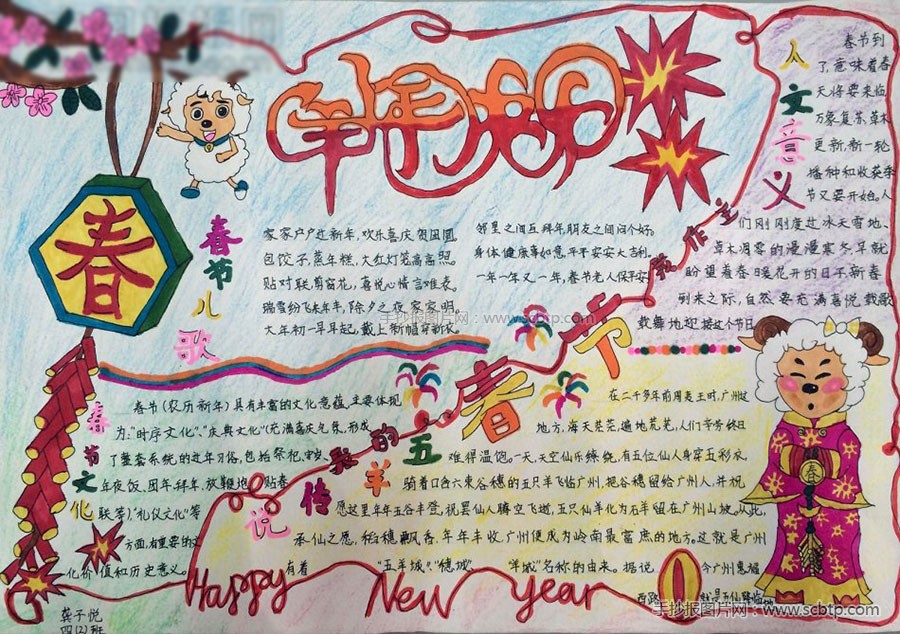 羊年
春
春节儿歌
家家户户迎新年，欢乐喜庆贺团圆
包饺子，蒸年糕，大红灯笼高高照。
贴对联剪窗花，喜悦心情言难表。
瑞雪纷飞表丰年，除夕之夜家家明。
大年初一早早起，戴上新帽穿新衣
邻里之间互拜年，朋友之间问个好。
身体健康事如意，平平安安大吉利，
一年一年又一年，春节老人保平安
人文意义
春节到
了，意味着春
天将要来临，
万象复苏，草木
更新，新一轮
播种和收获季
节又要开始。人
们刚刚度过冰天雪地、
草木凋零的漫漫寒冬，早就
盼望着春暖花开的日子，新春
到来之际，自然要充满喜悦载歌
载舞地迎接这个节日
春节
手抄报图片网：www.scbtp.com
春节文化
春节（农历新年）具有丰富的文化意蕴，主要体现
为："时序文化"、"庆典文化"（充满喜庆气氛，形成
了整套系统的过年习俗，包括祭祀，守岁，
年夜饭，团年拜年，放鞭炮，贴春
联等）、"礼仪文化"等
方面，有重要的文
化价值和历史意义。
五羊的传说
在二千多年前周夷王时，广州过
地方，海天茫茫，遍地荒芜，人们辛劳终日
难得温饱。一天，天空仙乐缭绕，有五位仙人身穿五彩衣，
骑着口含六束谷穗的五只羊飞临广州，把谷穗留给广州人，并祝
愿这里年年五谷丰登，祝罢仙人腾空飞逝，五只仙羊化为石羊留在广州山坡。从此，
承仙之愿，稻穗飘香，年年丰收，广州便成为岭南最富庶的地方。这就是广州
有着"五羊城"、"穗城"、"羊城"名称的由来。据说，今广州惠福
西路 就是五仙降临
春
福
Happy New year
龚子悦
四(2)班
手抄报图片网：www.scbtp.com